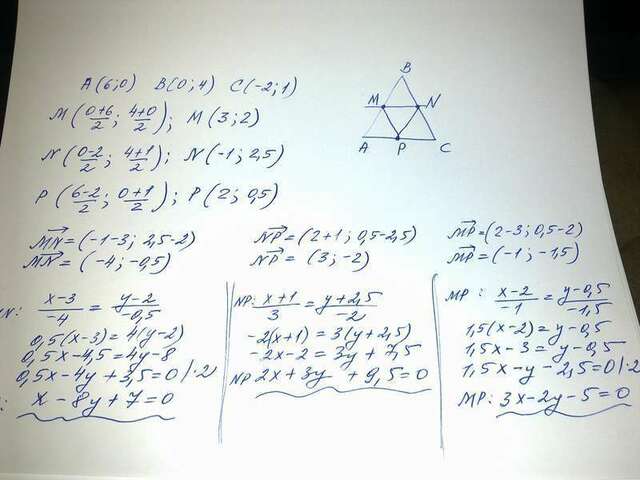 A(6;0) B(0;4) C(-2;1)
M((0+6)/2; (4+0)/2); M(3;2)
N((0-2)/2; (4+1)/2); N(-1; 2,5)
P((6-2)/2; (0+1)/2); P(2; 0,5)
B
M N
A P C
MN⃗=(-1-3; 2,5-2)
MN⃗=(-4; -0,5)
NP⃗=(2+1; 0,5-2,5)
NP⃗=(3; -2)
MP⃗=(2-3; 0,5-2)
MP⃗=(-1; -1,5)
N: (x-3)/-4 = (y-2)/-0,5
0,5(x-3)=4(y-2)
0,5x-4,5=4y-8
0,5x-4y+3,5=0 |·2
: x-8y+7=0
NP: (x+1)/3 = (y+2,5)/-2
-2(x+1)=3(y+2,5)
-2x-2=3y+7,5
NP 2x+3y+9,5=0
MP: (x-2)/-1 = (y-0,5)/-1,5
1,5(x-2)=y-0,5
1,5x-3=y-0,5
1,5x-y-2,5=0 |·2
MP: 3x-2y-5=0